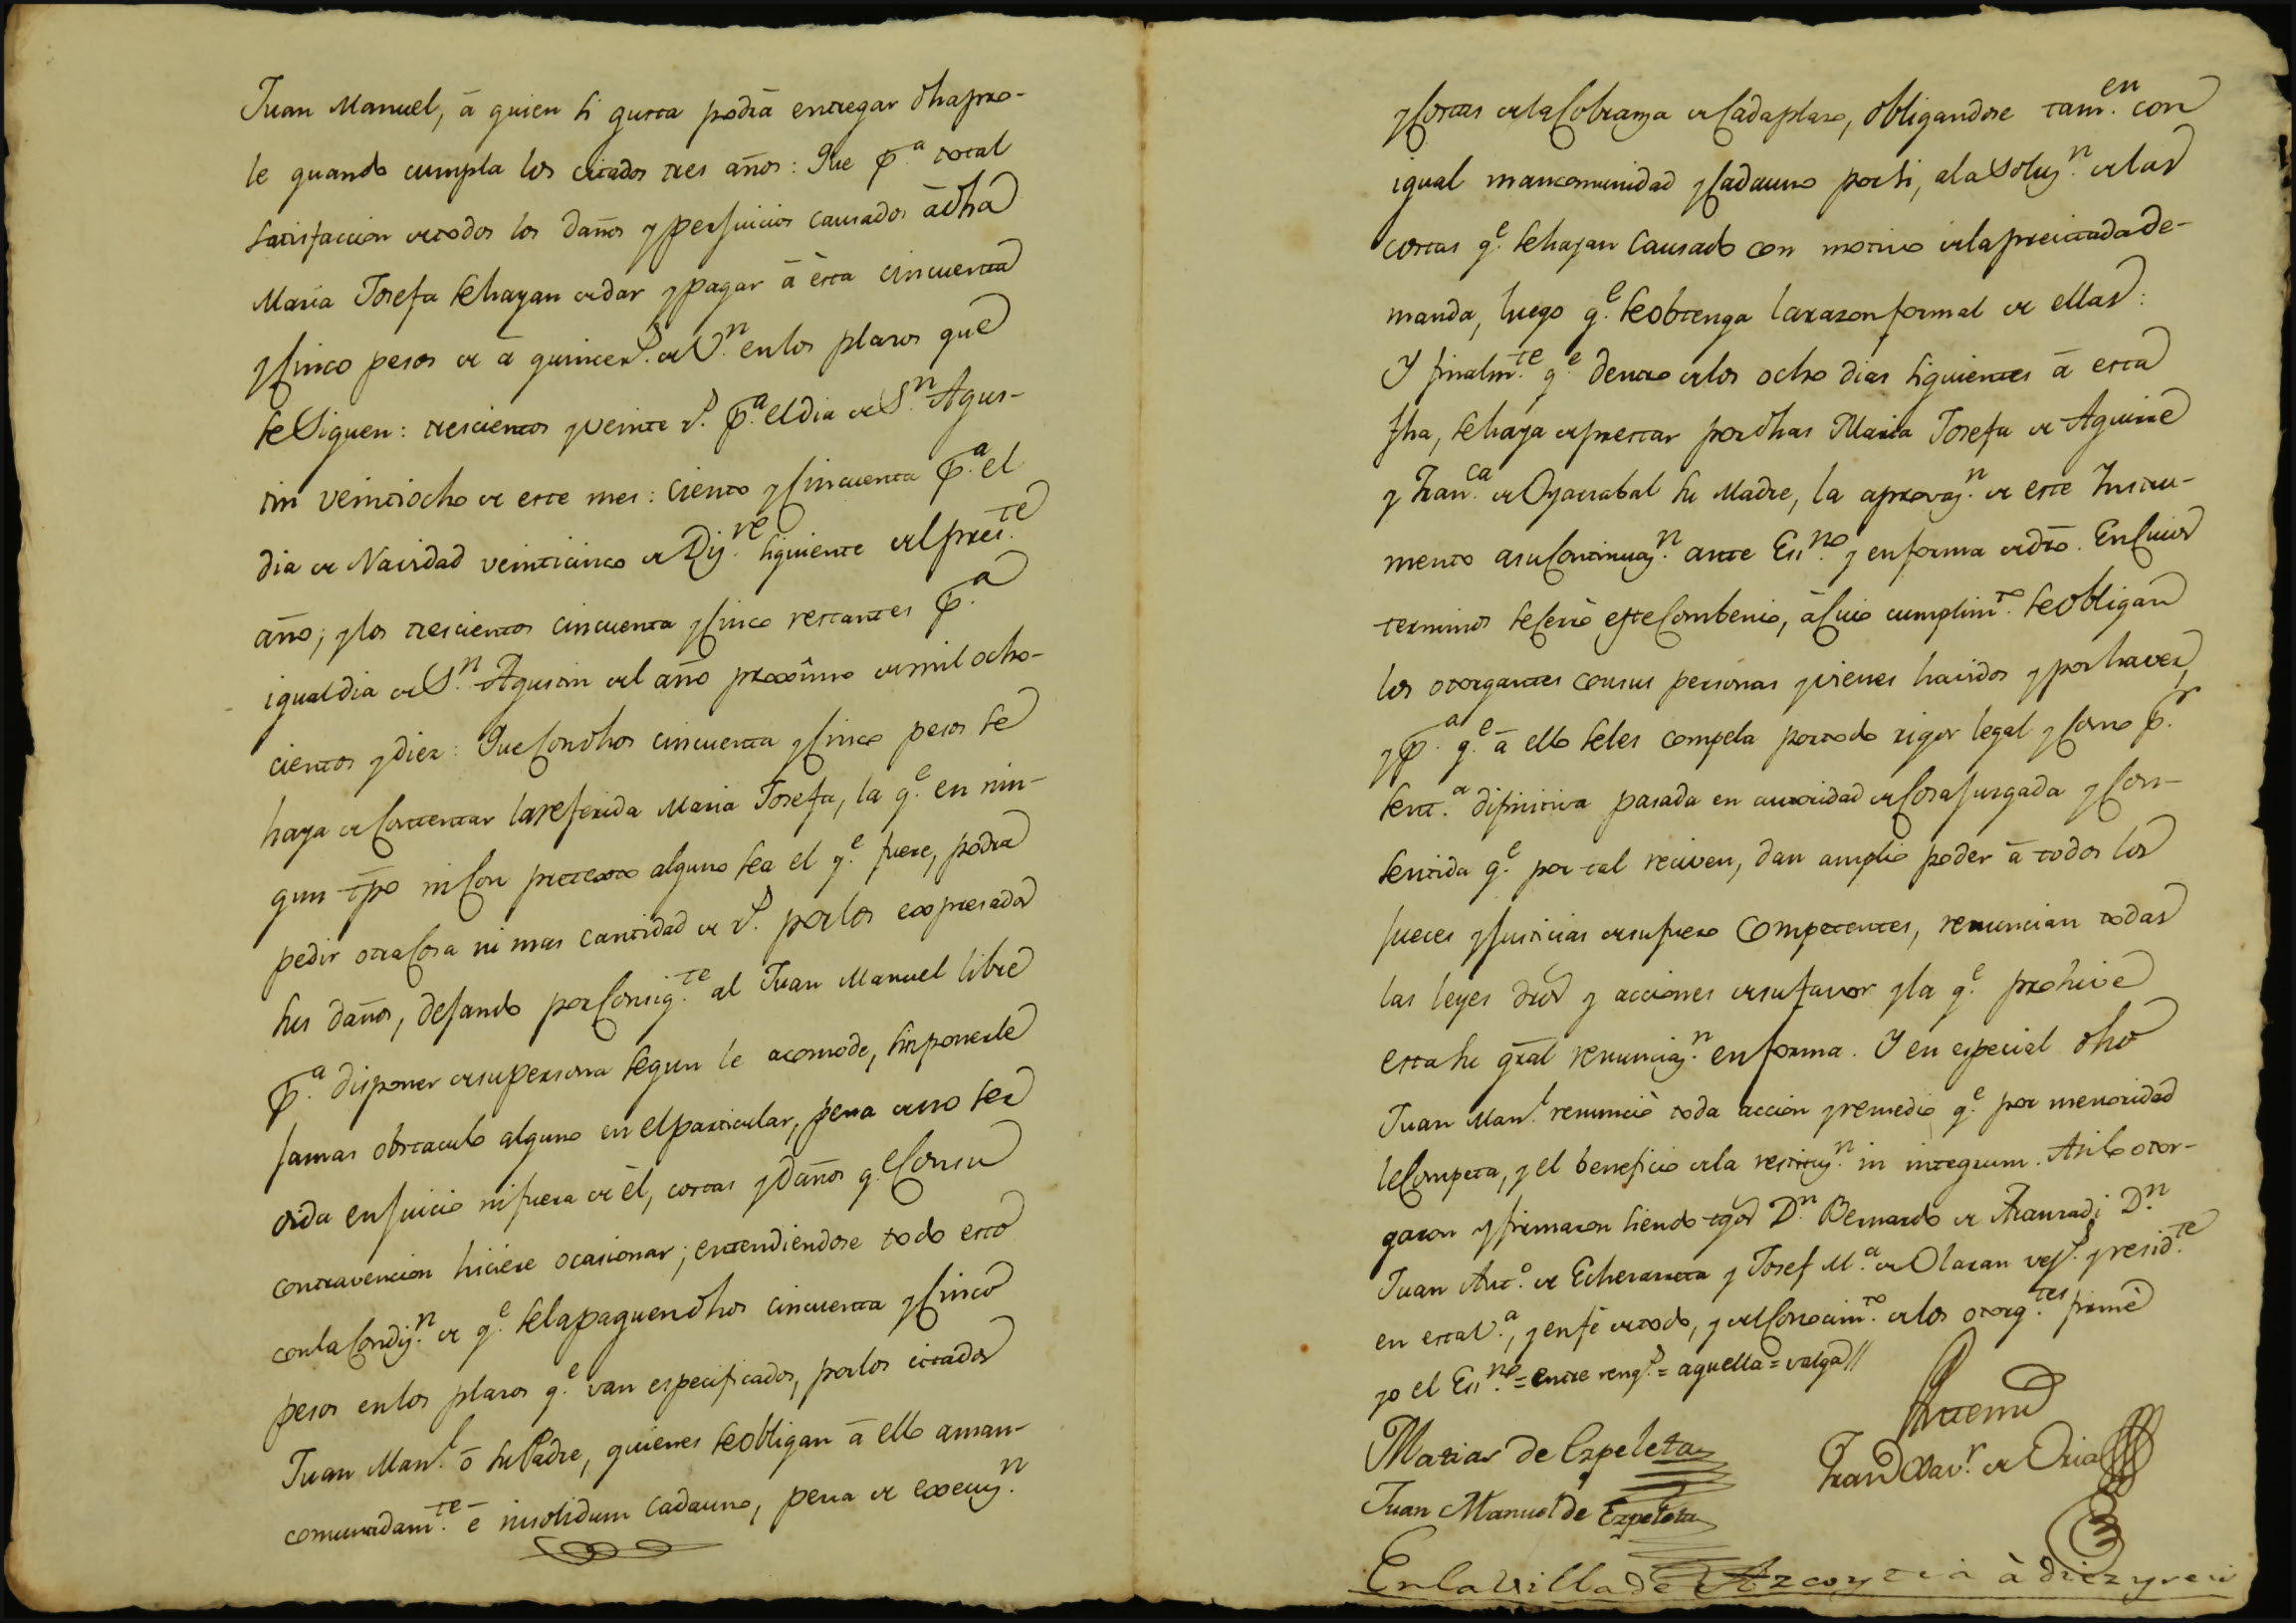 Juan Manuel, ā quien si gusta podrā entregar dha pro-
le quando cumpla los citados tres años: Que p.ª total
satisfaccion de todos los daños y perjuicios causados ā dha
Maria Josefa se hayan de dar y pagar ā èsta cincuenta
y cinco pesos de ā quince r.s de V.n en los plazos que
se Siguen: trescientos y veinte r.s p.ª el dia de S.n Agus-
tin veintiocho de este mes: ciento y cincuenta p.ª el
dia de Navidad veinticinco de Diz.re siguiente del pres.te
año; y los trescientos cincuenta y cinco restantes p.ª
igual dia de S.n Agustin del año proximo de mil ocho-
cientos y diez: Que con dhos cincuenta y cinco pesos se
haya de contentar la referida Maria Josefa, la q.e en nin-
gun tpo ni con pretexto alguno sea el q.e fuere, podra
pedir otra cosa ni mas cantidad de r.s por los expresados
sus daños, dejando por consig.te al Juan Manuel libre
p.ª disponer de su persona segun le acomode, sin ponerle
jamas obstaculo alguno en el particular, pena de no ser
oida en juicio ni fuera de èl, costas y daños q.e con su
contravencion hiciere ocasionar; entendiendose todo esto
con la condiz.n de q.e se la paguen dhos cincuenta y cinco
pesos en los plazos q.e van especificados, por los citados
Juan Man.l ō su Padre, quienes se obligan ā ello aman-
comunadam.te ē insolidum cada uno, pena de execuz.n
y costas de la cobranza de cada plazo, obligandose tam.en con
igual mancomunidad y cada uno por si, a la Soluz.n de las
costas q.e se hayan causado con motivo de la precitada de-
manda, luego q.e se obtenga la razon formal de ellas:
Y finalm.te q.e dentro de los ocho dias siguientes ā esta
fha, se haya de prestar por dhas Maria Josefa de Aguirre
y Fran.ca de Oyarzabal su Madre, la aprovaz.n de este Instru-
mento a su continuaz.n ante Ess.no y en forma de dro. En cuios
terminos se cerrò este combenio, ā cuio cumplim.to se obligan
los otorgantes con sus personas y vienes havidos y por haver,
y p.ª q.e ā ello se les compela por todo rigor legal y como p.r
sent.ª difinitiva pasada en autoridad de cosa juzgada y con-
sentida q.e por tal reciven, dan amplio poder ā todos los
jueces y justicias de su fuero Competentes, renuncian todas
las leyes dros y acciones de su favor y la q.e prohive
esta su gral renunciaz.n en forma. Y en especial dho
Juan Man.l renunciò toda accion y remedio q.e por menoridad
le competa, y el beneficio de la restituz.n in integrum. Asi lo otor-
garon y firmaron siendo tgos D.n Bernardo de Aranzadi D.n
Juan Ant.º de Echezarreta y Josef M.ª de Olazan vez.s y resid.te
en esta V.ª, y en fè de todo, y del conocim.to de los otorg.tes firmè
yo el Ess.no = entre reng.s = aquella = valga//
Matias de Ezpeleta
Juan Manuel de Ezpeleta
Ante mi
Fran.co Xav.r de Oria
En la Villa de Azcoytia à diez y seis